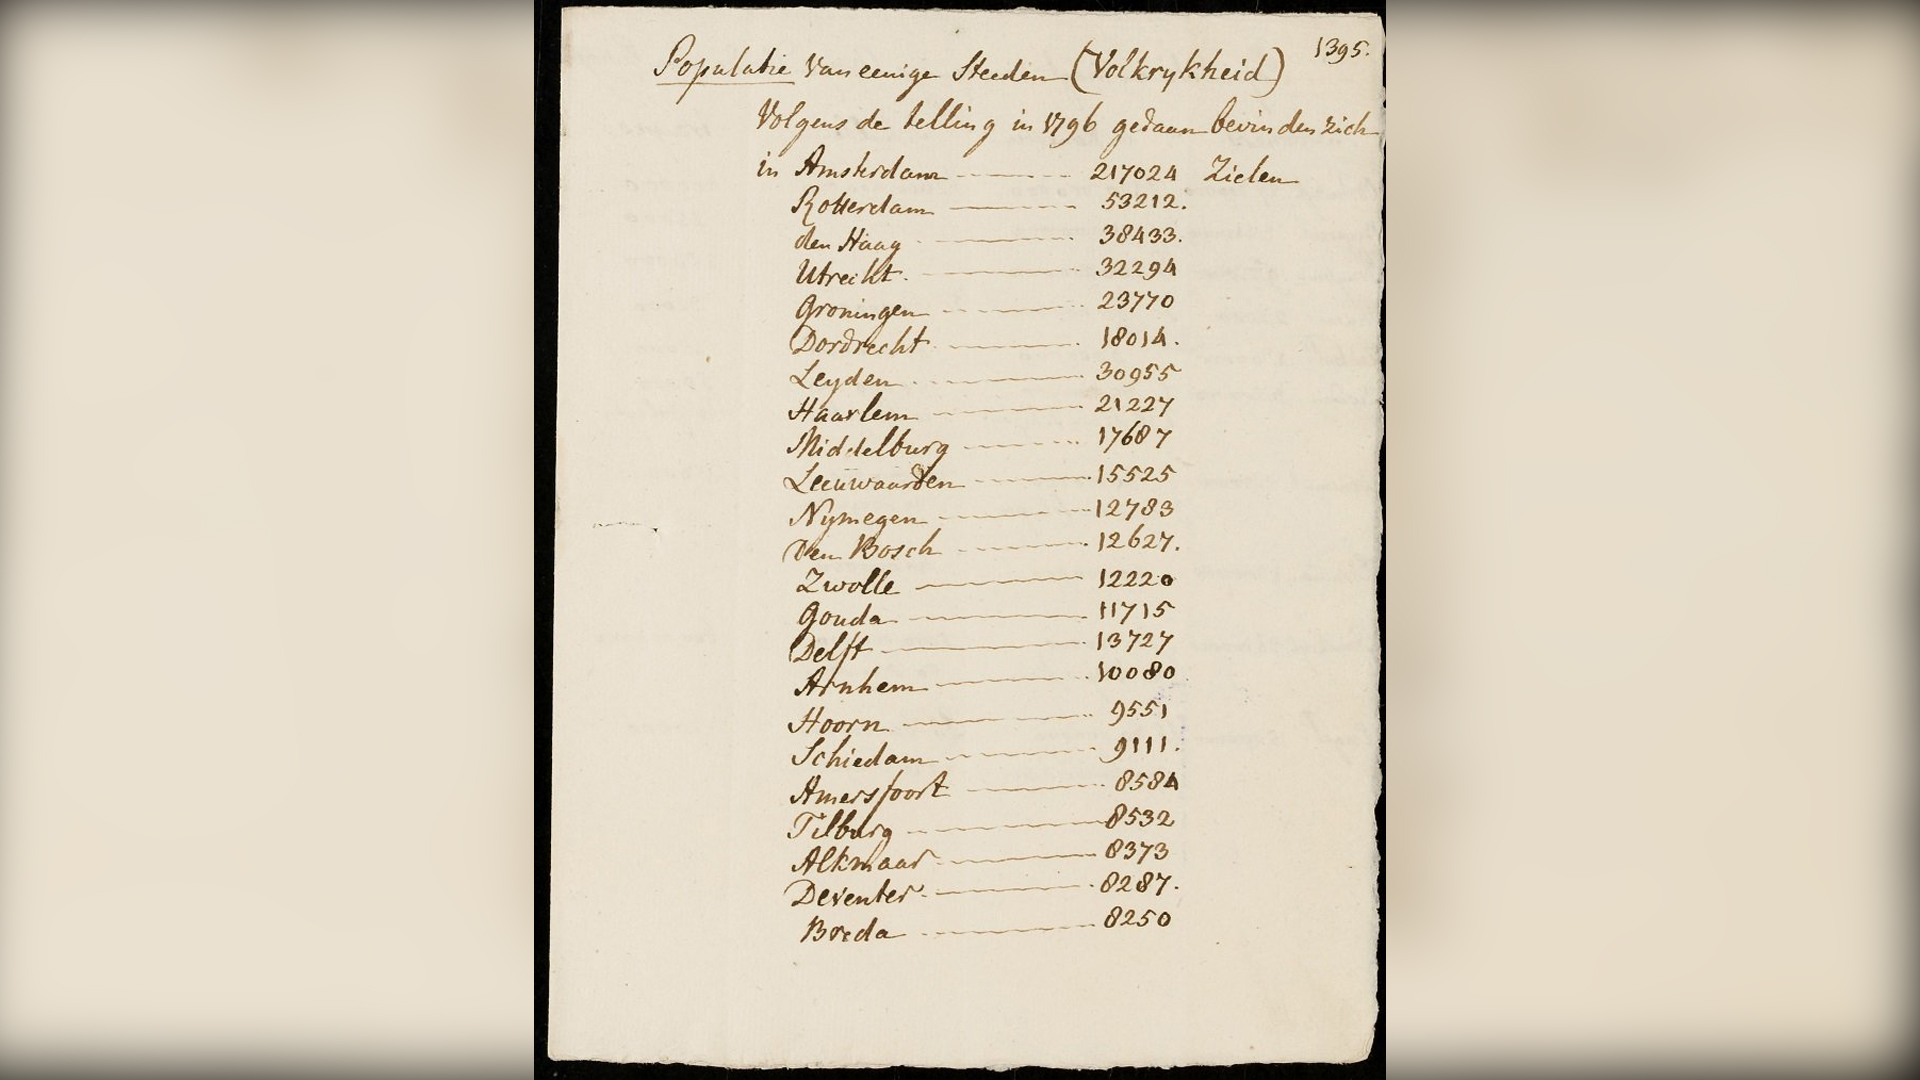 1395.
Populatie van eenige Steeden (Volkrykheid)
Volgens de telling in 1796 gedaan bevinden zich
in Amsterdam 217024 Zielen
Rotterdam 53212.
den Haag 38433.
Utrecht. 32294
Groningen 23770
Dordrecht 18014.
Leyden 30955
Haarlem 21227
Middelburg 17687
Leeuwaarden 15525
Nymegen 12783
Den Bosch 12627.
Zwolle 12220
Gouda 11715
Delft 13727
Arnhem 10080
Hoorn 9551
Schiedam 9111.
Amersfoort 8584
Tilburg 8532
Alkmaar 8373
Deventer 8287.
Breda 8250